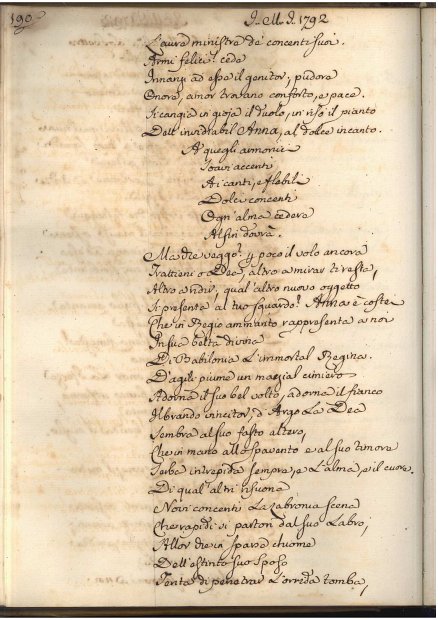 190
J. M. J. 1792
L'aura ministra de' concenti suoi.
Armi felici! cede
Innanzi ad esse il genitor; pudore
Onore, amor trovano conforto, e pace.
Si cangia in gioja il duolo, in riso il pianto
Dell' invidiabil Anna, al dolce incanto.
A' quegli armonici
Soavi accenti
Ai canti, e flebili
Dolci concenti
Ogn' alma cedera
Alfin dovrà.
Ma che veggo? p poco il volo ancora
Trattieni o Dea, altro a mirar ti resta,
Altro a udir, qual' altro nuovo oggetto
Si presenta al tuo sguardo? Anna è costei
Che in Regio ammanto rappresenta a noi
In sua beltà divina
Di Babilonia L'immortal Regina.
D'agili piume un marzial cimiero
Adorna il suo bel volto, adorna il fianco
Il brando vincitor, d' Argo La Dea
Sembra al suo fasto altero,
Che in mezzo allo spavento e al suo timore
Serba intrepida sempre, e L'alma, e il cuore.
Di qual' altri risuona
Novi concenti La scena
Che rapidi si parton dal suo Labro,
Allor che in sparse chiome
Dell' estinto suo sposo
Tenta di penetrar L'orrida tomba,